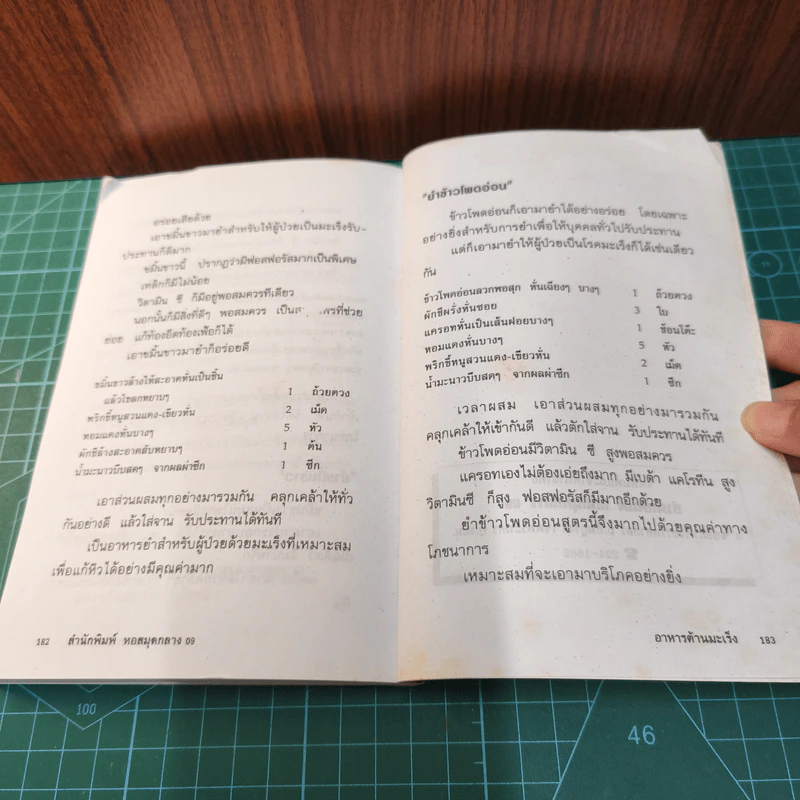 อร่อยเสียด้วย
เอาขมิ้นขาวมายำสำหรับให้ผู้ป่วยเป็นมะเร็งรับ-
ประทานก็ดีมาก
ขมิ้นขาวนี้ ปรากฏว่ามีฟอสฟอรัสมากเป็นพิเศษ
เหล็กก็มีไม่น้อย
วิตามิน ซี ก็มีอยู่พอสมควรทีเดียว
นอกนั้นก็มีสิ่งที่ดีๆ พอสมควร เป็นส พรที่ช่วย
ย่อย แก้ท้องอืดท้องเฟ้อก็ได้
เอาขมิ้นขาวมายำก็อร่อยดี
ขมิ้นขาวล้างให้สะอาดหั่นเป็นชิ้น
แล้วโขลกหยาบๆ 1 ถ้วยตวง
พริกขี้หนูสวนแดง-เขียวหั่น 2 เม็ด
หอมแดงหั่นบางๆ 5 หัว
ผักชีล้างสะอาดสับหยาบๆ 1 ต้น
น้ำมะนาวบีบสดๆ จากผลผ่าซีก 1 ซีก
เอาส่วนผสมทุกอย่างมารวมกัน คลุกเคล้าให้ทั่ว
กันอย่างดี แล้วใส่จาน รับประทานได้ทันที
เป็นอาหารยำสำหรับผู้ป่วยด้วยมะเร็งที่เหมาะสม
เพื่อแก้หิวได้อย่างมีคุณค่ามาก
182 สำนักพิมพ์ หอสมุดกลาง 09
"ยำข้าวโพดอ่อน"
ข้าวโพดอ่อนก็เอามายำได้อย่างอร่อย โดยเฉพาะ
อย่างยิ่งสำหรับการยำเพื่อให้บุคคลทั่วไปรับประทาน
แต่ก็เอามายำให้ผู้ป่วยเป็นโรคมะเร็งก็ได้เช่นเดียว
กัน
ข้าวโพดอ่อนลวกพอสุก หั่นเฉียงๆ บางๆ 1 ถ้วยตวง
ผักชีฝรั่งหั่นซอย 3 ใบ
แครอทหั่นเป็นเส้นฝอยบางๆ 1 ช้อนโต๊ะ
หอมแดงหั่นบางๆ 5 หัว
พริกขี้หนูสวนแดง-เขียวหั่น 2 เม็ด
น้ำมะนาวบีบสดๆ จากผลผ่าซีก 1 ซีก
เวลาผสม เอาส่วนผสมทุกอย่างมารวมกัน
คลุกเคล้าให้เข้ากันดี แล้วตักใส่จาน รับประทานได้ทันที
ข้าวโพดอ่อนมีวิตามิน ซี สูงพอสมควร
แครอทเองไม่ต้องเอ่ยถึงมาก มีเบต้า แคโรทีน สูง
วิตามินซี ก็สูง ฟอสฟอรัสก็มีมากอีกด้วย
ยำข้าวโพดอ่อนสูตรนี้จึงมากไปด้วยคุณค่าทาง
โภชนาการ
เหมาะสมที่จะเอามาบริโภคอย่างยิ่ง
อาหารต้านมะเร็ง 183
100
46